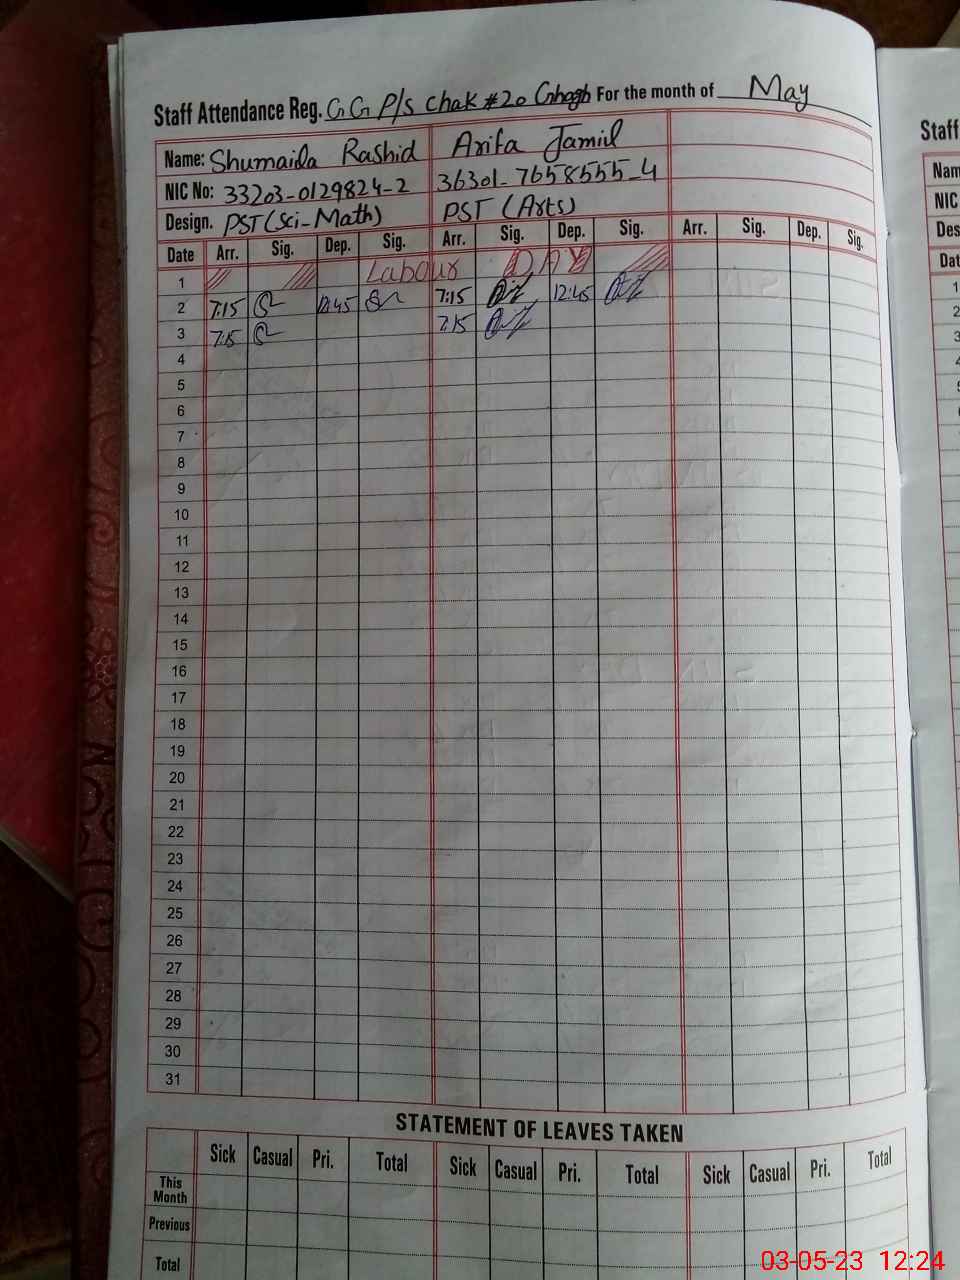 Staff Attendance Reg. G G P/S Chak #20 Ghagh For the month of May
Name: Shumaila Rashid Arifa Jamil
NIC No: 33203-0129824-2 36301-7658555-4
Design. PST (Sci-Math) PST (Arts)
Date Arr. Sig. Dep. Sig. Arr. Sig. Dep. Sig. Arr. Sig. Dep. Sig.
1 Labour DAY
2 7:15 12:45 7:15 12:45
3 7:15 7:15
4
5
6
7
8
9
10
11
12
13
14
15
16
17
18
19
20
21
22
23
24
25
26
27
28
29
30
31
STATEMENT OF LEAVES TAKEN
Sick Casual Pri. Total Sick Casual Pri. Total Sick Casual Pri. Total
This Month
Previous
Total
Staff
Nam
NIC
Des
Dat
1
2
3
4
5
6
03-05-23 12:24